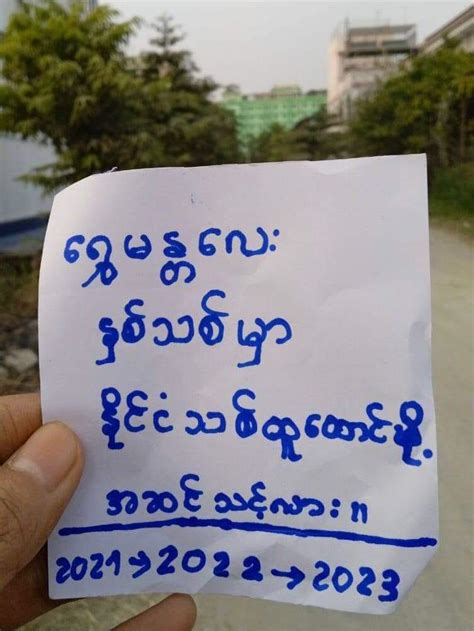 ရွှေမန္တလေး
နှစ်သစ်မှာ
နိုင်ငံသစ်ထူထောင်ဖို့
အဆင်သင့်လား။
2021→2022→2023